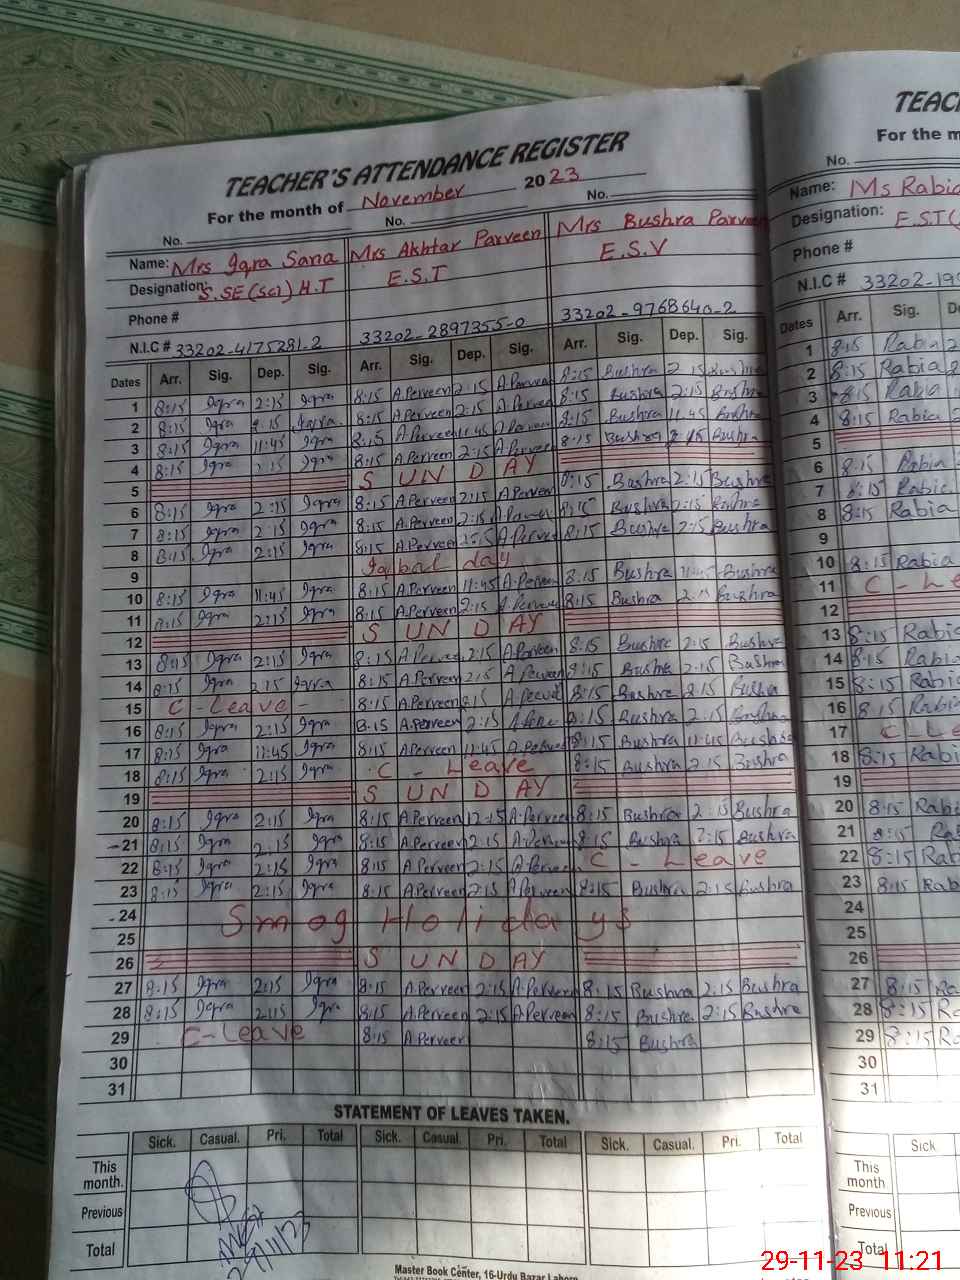 TEACHER'S ATTENDANCE REGISTER
For the month of November 2023
No. No. No.
Name: Mrs Iqra Sana Mrs Akhtar Parveen Mrs Bushra Parveen
Designation: S.SE(Sci) H.T E.S.T E.S.V
Phone #
N.I.C # 33202-4175281-2 33202-2897355-0 33202-9768640-2
Dates Arr. Sig. Dep. Sig. Arr. Sig. Dep. Sig. Arr. Sig. Dep. Sig.
1 8:15 Iqra 2:15 Iqra 8:15 A.Perveen 2:15 A.Perveen 8:15 Bushra 2:15 Bushra
2 8:15 Iqra 2:15 Iqra 8:15 A.Perveen 2:15 A.Perveen 8:15 Bushra 2:15 Bushra
3 8:15 Iqra 11:45 Iqra 8:15 A.Perveen 11:45 A.Perveen 8:15 Bushra 11:45 Bushra
4 8:15 Iqra 2:15 Iqra 8:15 A.Perveen 2:15 A.Perveen 8:15 Bushra 2:15 Bushra
5 SUNDAY
6 8:15 Iqra 2:15 Iqra 8:15 A.Perveen 2:15 A.Perveen 8:15 Bushra 2:15 Bushra
7 8:15 Iqra 2:15 Iqra 8:15 A.Perveen 2:15 A.Perveen 8:15 Bushra 2:15 Bushra
8 8:15 Iqra 2:15 Iqra 8:15 A.Perveen 2:15 A.Perveen 8:15 Bushra 2:15 Bushra
9 Iqbal day
10 8:15 Iqra 11:45 Iqra 8:15 A.Perveen 11:45 A.Perveen 8:15 Bushra 11:45 Bushra
11 8:15 Iqra 2:15 Iqra 8:15 A.Perveen 2:15 A.Perveen 8:15 Bushra 2:15 Bushra
12 SUNDAY
13 8:15 Iqra 2:15 Iqra 8:15 A.Perveen 2:15 A.Perveen 8:15 Bushra 2:15 Bushra
14 8:15 Iqra 2:15 Iqra 8:15 A.Perveen 2:15 A.Perveen 8:15 Bushra 2:15 Bushra
15 C-Leave 8:15 A.Perveen 2:15 A.Perveen 8:15 Bushra 2:15 Bushra
16 8:15 Iqra 2:15 Iqra 8:15 A.Perveen 2:15 8:15 Bushra 2:15 Bushra
17 8:15 Iqra 11:45 Iqra 8:15 A.Perveen 11:45 A.Perveen 8:15 Bushra 11:45 Bushra
18 8:15 Iqra 2:15 Iqra C-Leave 8:15 Bushra 2:15 Bushra
19 SUNDAY
20 8:15 Iqra 2:15 Iqra 8:15 A.Perveen 12:15 A.Perveen 8:15 Bushra 2:15 Bushra
21 8:15 Iqra 2:15 Iqra 8:15 A.Perveen 2:15 A.Perveen 8:15 Bushra 2:15 Bushra
22 8:15 Iqra 2:15 Iqra 8:15 A.Perveen 2:15 A.Perveen C-Leave
23 8:15 Iqra 2:15 Iqra 8:15 A.Perveen 2:15 A.Perveen 8:15 Bushra 2:15 Bushra
24 Smog Holidays
25
26 SUNDAY
27 8:15 Iqra 2:15 Iqra 8:15 A.Perveen 2:15 A.Perveen 8:15 Bushra 2:15 Bushra
28 8:15 Iqra 2:15 Iqra 8:15 A.Perveen 2:15 A.Perveen 8:15 Bushra 2:15 Bushra
29 C-Leave 8:15 A.Perveen 8:15 Bushra
30
31
STATEMENT OF LEAVES TAKEN.
Sick. Casual. Pri. Total Sick. Casual. Pri. Total Sick. Casual. Pri. Total
This month.
Previous
Total
29/11/23
Master Book Center, 16-Urdu Bazar Lahore
TEAC
For the m
No.
Name: Ms Rabia
Designation: E.S.T(
Phone #
N.I.C # 33202-19
Dates Arr. Sig. De
1 8:15 Rabia 2
2 8:15 Rabia
3 8:15 Rabia
4 8:15 Rabia 2
5
6 8:15 Rabia
7 8:15 Rabia
8 8:15 Rabia
9
10 8:15 Rabia
11 C-Le
12
13 8:15 Rabia
14 8:15 Rabia
15 8:15 Rabia
16 8:15 Rabia
17 C-Le
18 8:15 Rabi
19
20 8:15 Rabi
21 8:15 Rab
22 8:15 Rab
23 8:15 Rab
24
25
26
27 8:15 Ra
28 8:15 Ra
29 8:15 Ra
30
31
Sick
This month
Previous
Total
29-11-23 11:21